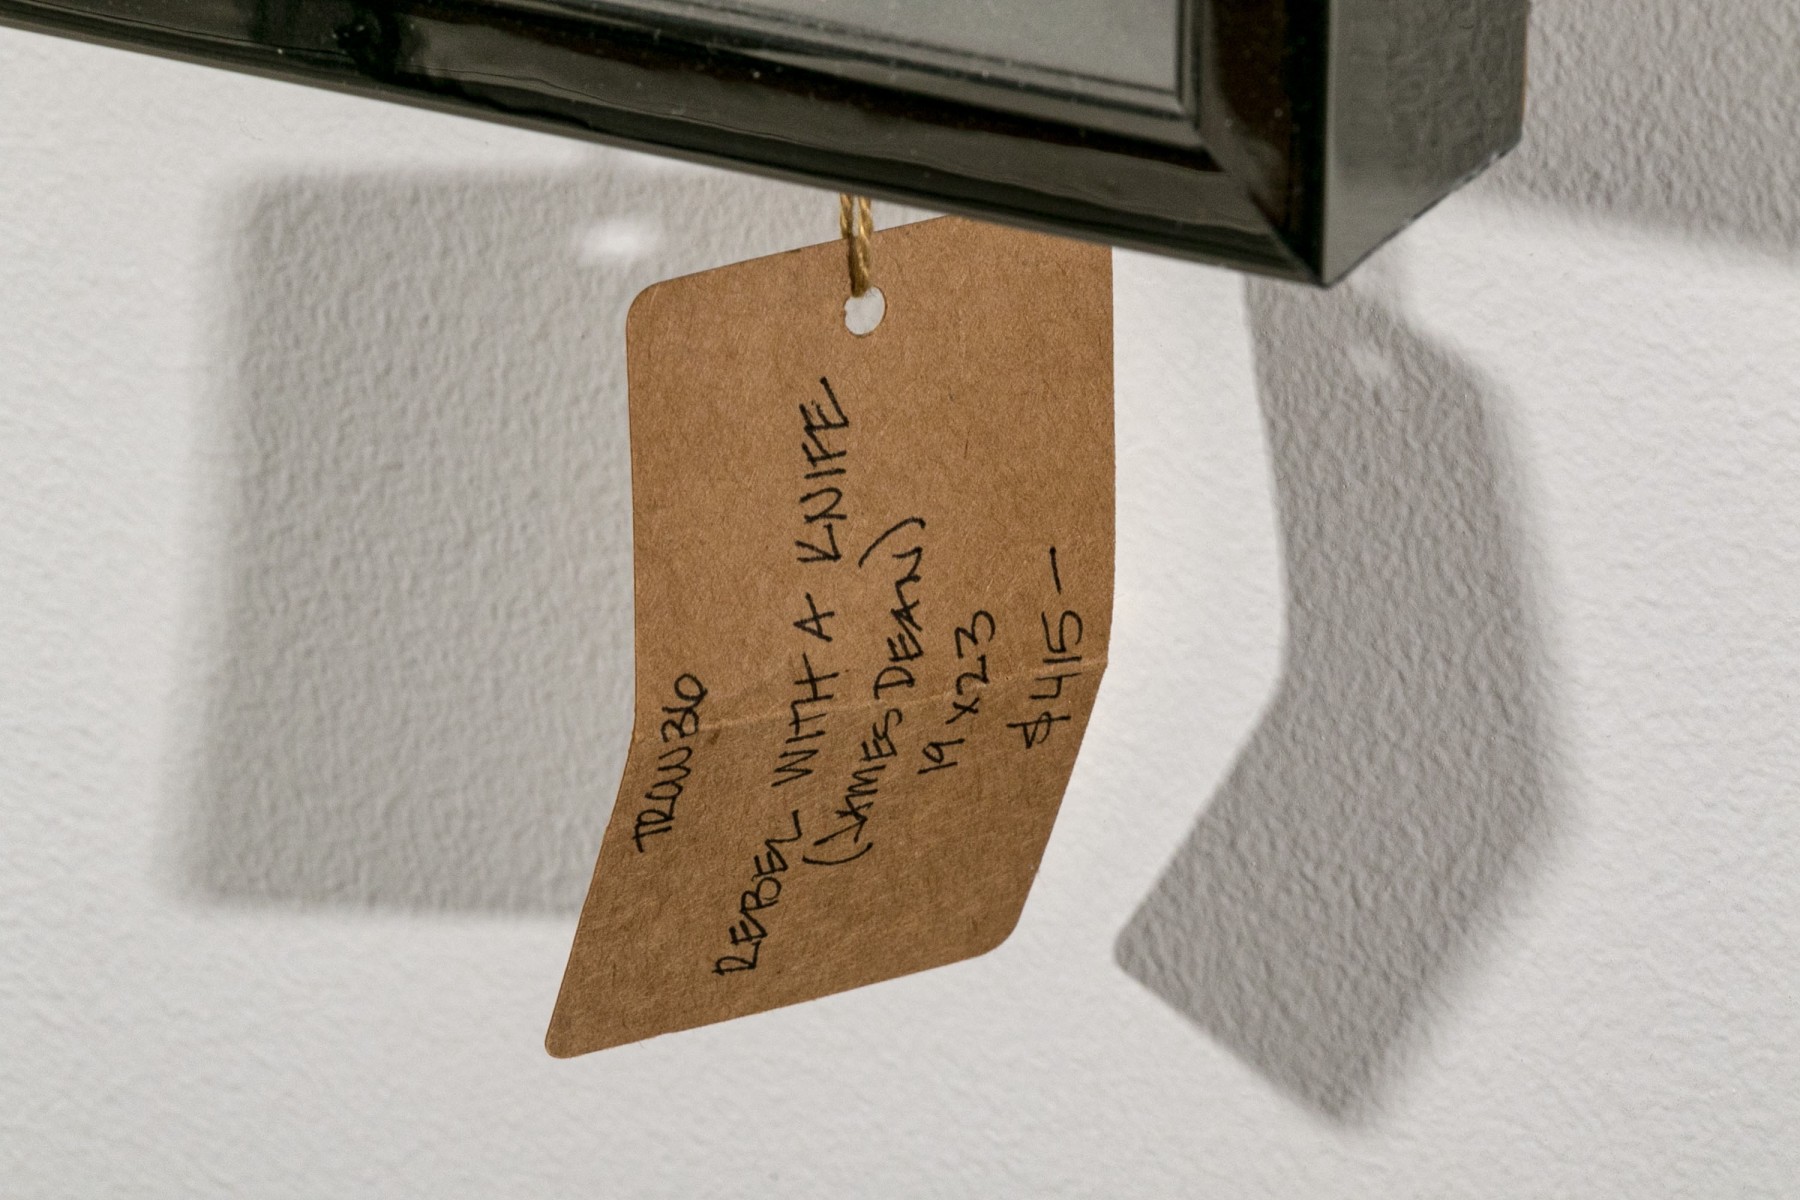 TROW36
REBEL WITH A KNIFE
(JAMES DEAN)
19 x 23
$415—